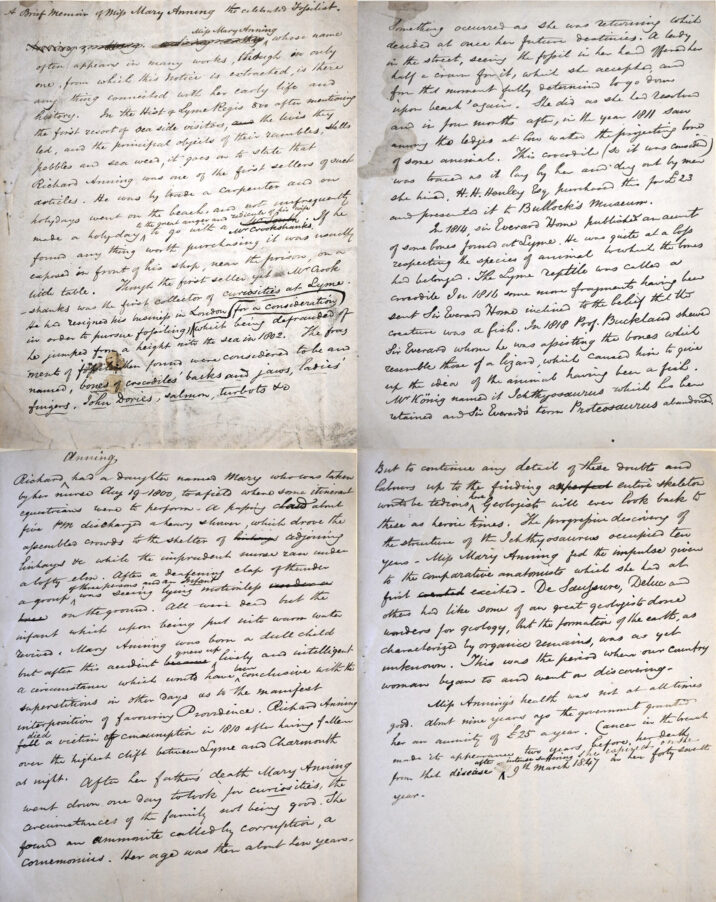 A Brief Memoir of Miss Mary Anning the celebrated Fossilist.
Miss Mary Anning
whose name
often appears in many works, though in only
one, from which this Notice is extracted, is there
any thing connected with her early life and
history. In the Hist of Lyme Regis &c after mentioning
the first resort of sea side visitors, the lives they
led, and the principal objects of their rambles, Shells
pebbles and sea weed, it goes on to state that
Richard Anning was one of the first sellers of such
articles. He was by trade a carpenter and on
holydays went on the beach, and not unfrequently
to the great anger and ridicule of his wife
made a holyday to go with a Mr Crookshanks. If he
found any thing worth purchasing it was usually
expose in front of his shop, near the prison, on a
little table. Though the first seller, yet Mr Crook
-shanks was the first collector of curiosities at Lyme.
He had resigned his business in London (for a consideration)
in order to pursue fossiling) which being defrauded of
he jumped from a height into the sea in 1802. The frag
ments of then found were considered to be and
named, bones of crocodiles' backs and jaws, ladies'
fingers, John Dories, salmon, turbots &c
Anning,
Richard had a daughter named Mary who was taken
by her nurse Aug 19-1800, to a field where some itinerant
equestrians were to perform. A passing cloud about
five PM discharged a heavy shower, which drove the
assembled crowds to the shelter of adjoining
linhays &c while the imprudent nurse ran under
a lofty elm. After a deafening clap of thunder
of three persons and an Infant
a group was seen lying motionless
on the ground. All were dead but the
infant which upon being put into warm water
revived. Mary Anning was born a dull child
grew up
but after this accident lively and intelligent
been
a circumstance which wants have conclusive with the
superstitions in other days as to the manifest
interposition of favouring Providence. Richard Anning
died
fell a victim of consumption in 1810 after having fallen
over the highest clift between Lyme and Charmouth
at night. After her fathers death Mary Anning
went down one day to look for curiosities, the
circumstances of the family not being good. She
found an ammonite called by corruption, a
cornemonius. Her age was then about ten years.
Something occurred as she was returning which
decided at once her future destinies. A lady
in the street, seeing the fossil in her hand offered her
half a crown for it, which she accepted, and
for this moment fully determined to go down
upon beach 'again'. She did as she had resolved
and in four months after, in the year 1811 saw
among the ledges at low water the projecting bone
of some animal. This crocodile (so it was considered)
was traced as it lay by her and dug out by men
she hired. H.H. Henley Esq purchased this for £23
and presented it to Bullock's Museum.
In 1814, sir Everard Home published an account
of some bones found at Lyme. He was quite at a loss
respecting the species of animal to which the bones
had belonged. The Lyme reptile was called a
crocodile In 1816 some more fragments having been
sent Sir Everard Home inclined to the belief that the
creature was a fish. In 1818 Prof. Buckland shewed
Sir Everard whom he was assisting the bones which
resemble those of a lizard which caused him to give
up the idea of the animal having been a fish.
Mr König named it Ichthyosaurus which has been
retained and Sir Everard's term Proteosaurus abandoned
But to continue any detail of these doubts and
labours up to the finding a perfect entire skeleton
but
wont be tedious Geologists will ever look back to
these as heroic times. The progressive discovery of
the structure of the Ichthyosaurus occupied ten
years - Miss Mary Anning fed the impulse given
to the comparative anatomists which she had at
first excited. De Saussure, Deluc and
others had like some of our great geologists done
wonders for geology, but the formation of the earth, as
characterized by organic remains, was as yet
unknown. This was the period when our country
woman began to and went on discovering.
Miss Anning's health was not at all times
good. About nine years ago the government granted
her an annuity of £25 a year. Cancer in the breast
made its appearance two years before, her death
after intense suffering she expired on the
from that disease 9th March 1847 in her forty seventh
year.